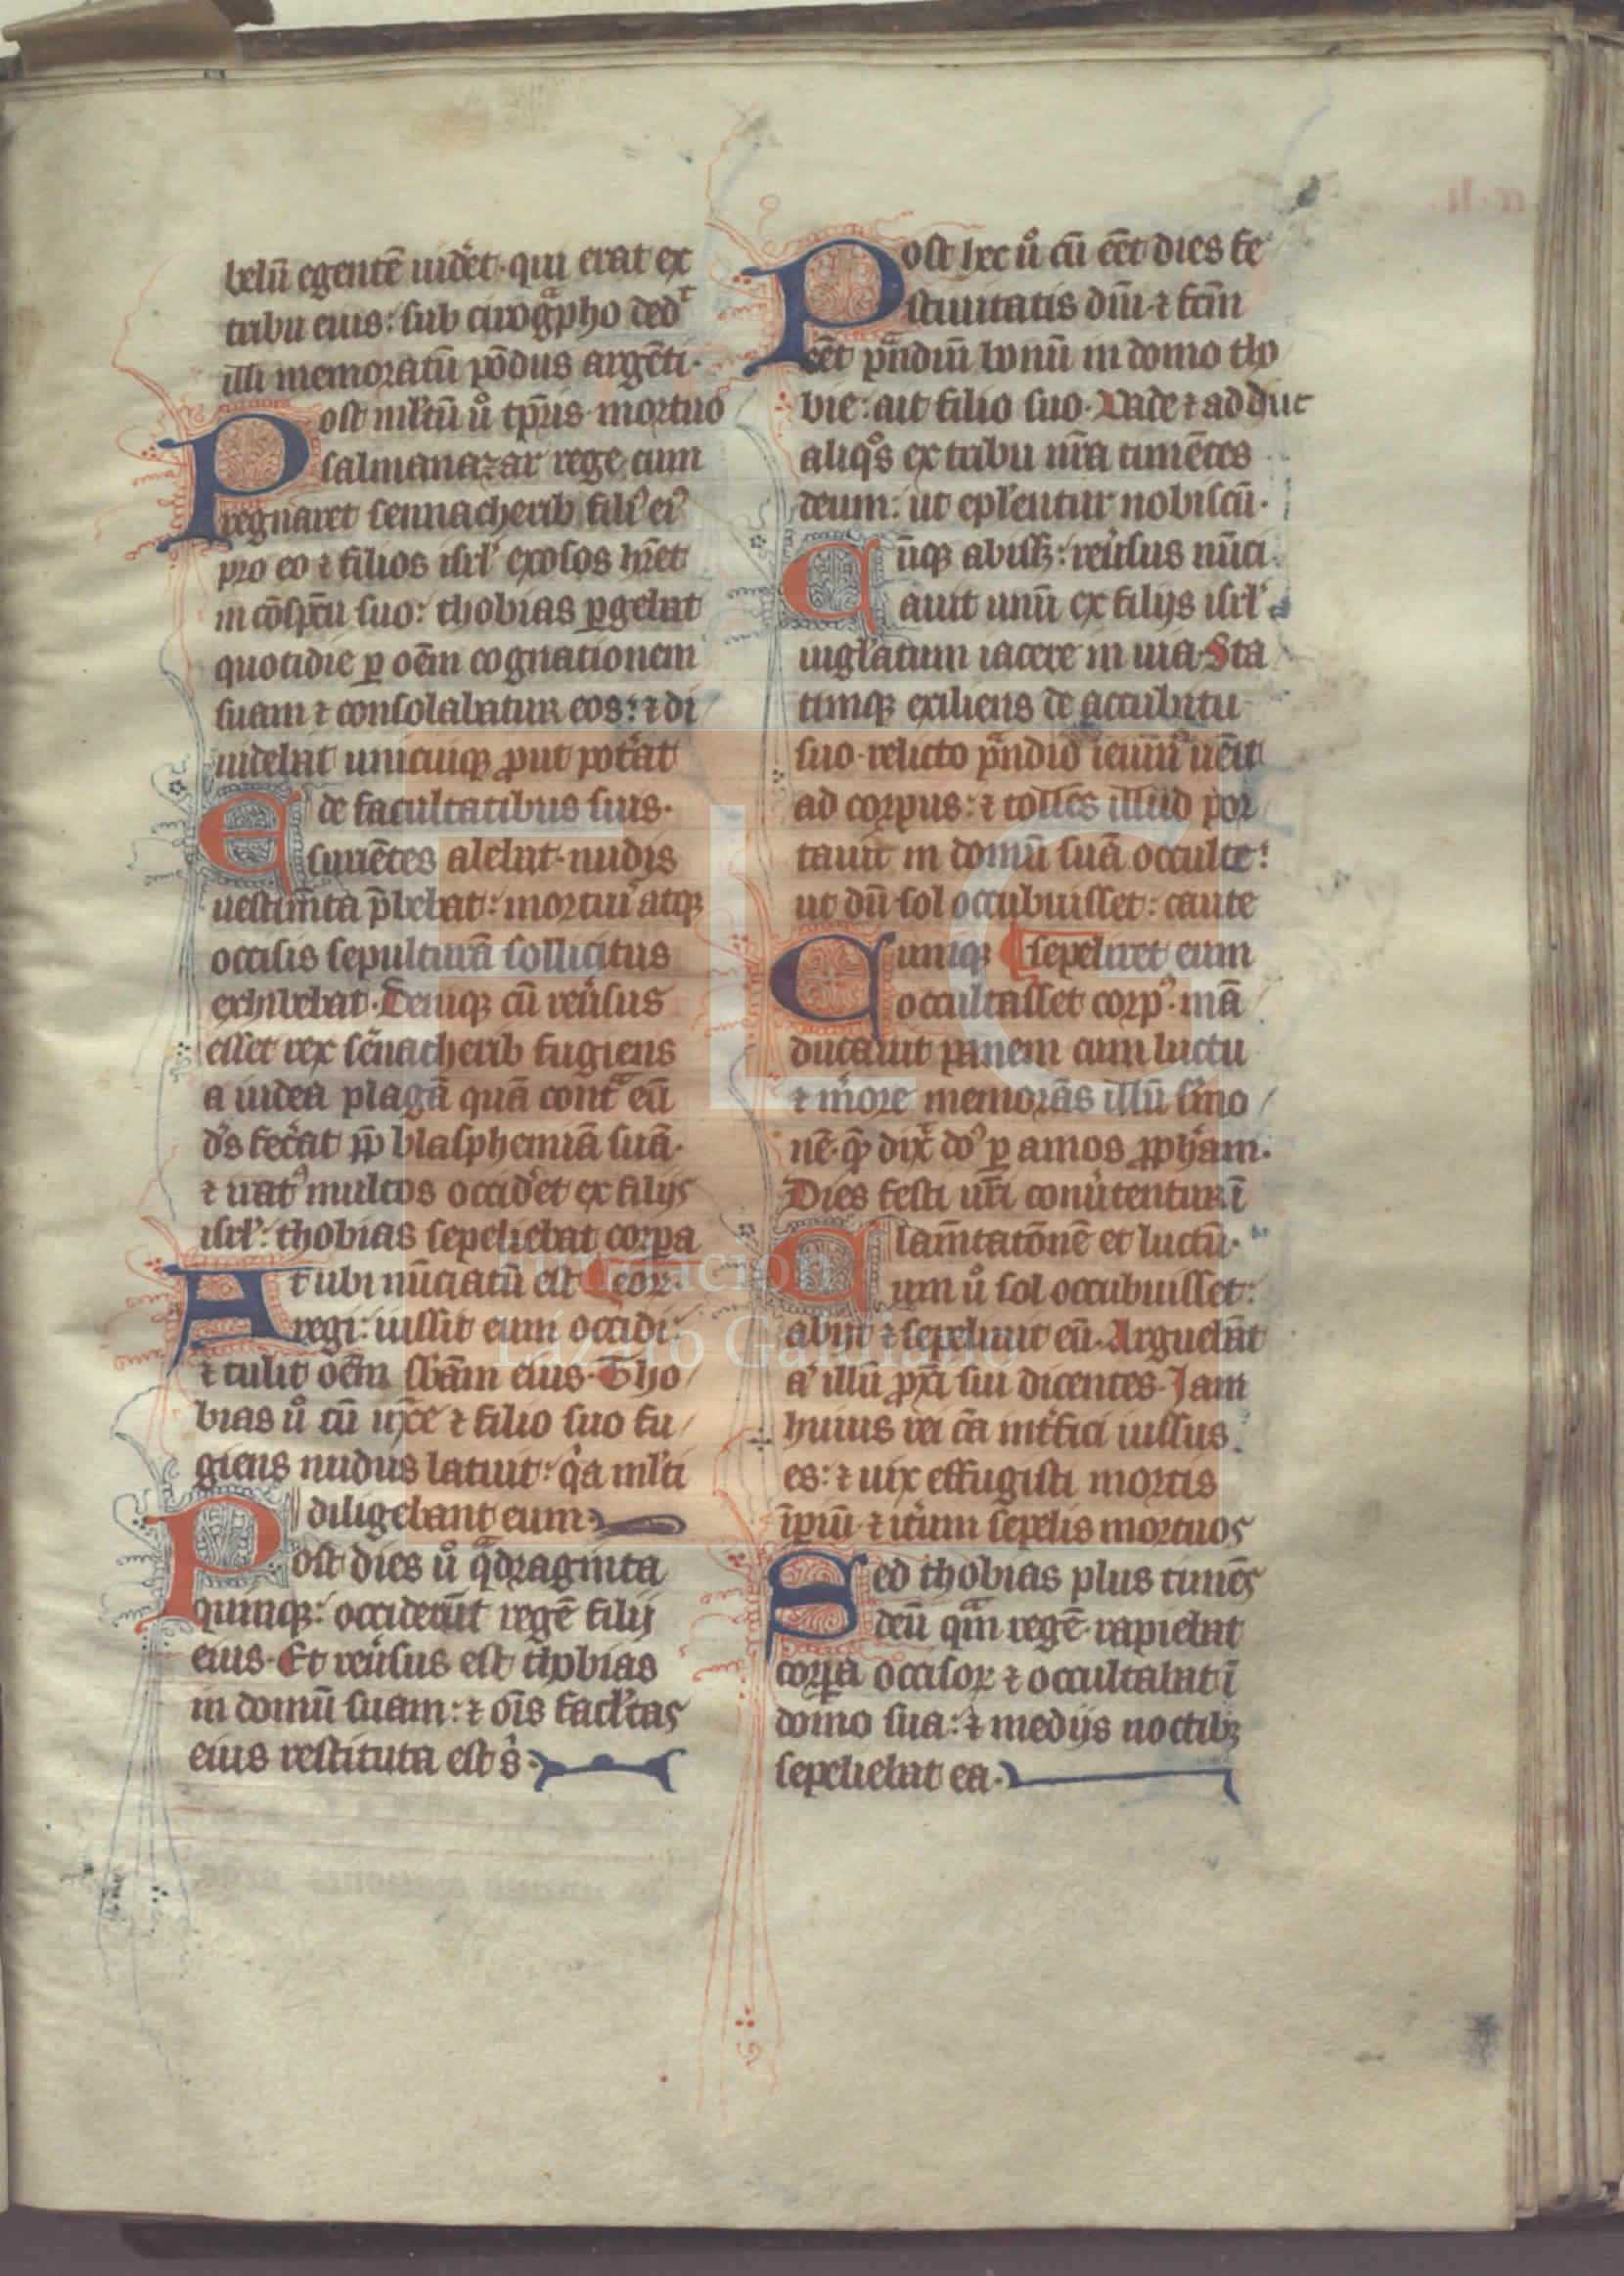 belū egentē uid̾et · qui erat ex
tribu eius : sub cirogͣpho ded᷑
illi memoratū pōdus argēti ·
Post ml̓tū u̾o tp̄ris · mortuo
salmanazar rege cum
regnaret sennacherib fili᷒ ei᷒
pro eo ⁊ filios isrl̓ exosos hr̄et
in cōspc̄tu suo : thobias ꝑgebat
quotidie ꝑ oēm cognationem
suam ⁊ consolabatur eos : ⁊ di
uidebat unicuiqꝫ ꝓut pot̾at
de facultatibus suis ·
Esuriētes alebat · nudis
uestim̄ta p̄bebat : mortuis atqꝫ
occisis sepulturā sollicitus
exhibebat · Deniqꝫ cū reu̾sus
esset rex sēnacherib fugiens
a iudea plagā quā contͣ eū
d̓s fec̾at ꝓp̄ blasphemiā suā ·
⁊ irat᷒ multos occid̾et ex filijs
isrl̓ : thobias sepeliebat corꝑa
At ubi nūciatū est eoꝝ ·
regi : iussit eum occidi :
⁊ tulit oēm sbām eius · Tho
bias u̾o cū ux̄e ⁊ filio suo fu
giens nudus latuit : qͥa ml̓ti
diligebant eum
Post dies u̾o qͣdraginta
quinqꝫ : occiderūt regē filij
eius · Et reu̾sus est thobias
in domū suam : ⁊ oīs facl̓tas
eius restituta est s̓ ·
Post hec u̾o cū eēt dies fe
stiuitatis dn̄i · ⁊ fc̄m
eēt pͣndiū bonū in domo tho
bie : ait filio suo · Uade ⁊ adduc
aliqͦs ex tribu nr̄a timētes
deum : ut epl̓entur nobiscū ·
Cūqꝫ abissꝫ : reu̾sus nūci
auit unū ex filijs isrl̓
iugl̓atum iacere in uia · Sta
timqꝫ exiliens de accubitu
suo · relicto pͣndio ieiun᷒ uēit
ad corpus : ⁊ tollēs illud por
tauit in domū suā occulte :
ut dū sol occubuisset : caute
Cumqꝫ sepeliret eum
occultasset corp᷒ · mā
ducauit panem cum luctu
⁊ tͥmore memorās illū s̾mo
nē · qͫ dix̾ do᷒ ꝑ amos ꝓph̾am ·
Dies festi ur̄i conu̾tentur ī
lam̄tatōnē et luctū ·
Cum u̾o sol occubuisset :
abijt ⁊ sepeliuit eū · Arguebāt
a᷒ illū ꝓx̄i sui dicentes · Jam
huius rei cā int̾fici iussus
es : ⁊ uix effugisti mortis
īꝑiū · ⁊ it̾um sepelis mortuos
Sed thobias plus timēs
deū qͣm regē · rapiebat
corꝑa occisoꝝ ⁊ occultabat ī
domo sua : ⁊ medijs noctibꝫ
sepeliebat ea ·
Fundación
Lázaro Galdiano